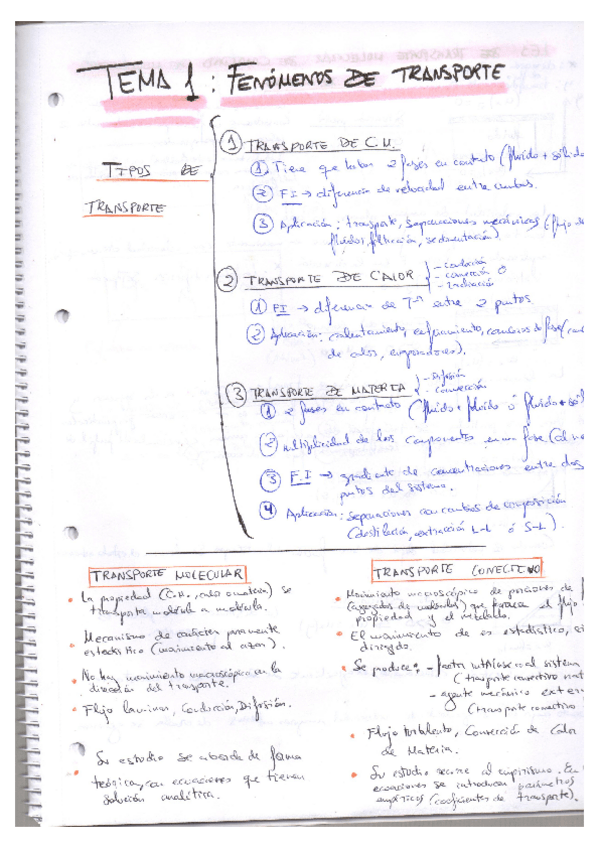 TEMA 1 : FENÓMENOS DE TRANSPORTE
TIPOS DE
TRANSPORTE
1 TRANSPORTE DE C.M.
1 Tiene que haber 2 fases en contacto (fluido + sólido
2 F.I → diferencia de velocidad entre ambas.
3 Aplicación: transporte, separaciones mecánicas (flujo de
fluidos, filtración, sedimentación)
2 TRANSPORTE DE CALOR
- conducción
- convección
- Irradiación
1 F.I → diferencia de Tª entre 2 puntos
2 Aplicación: calentamiento, enfriamiento, cambios de fase
de calor, evaporadores).
3 TRANSPORTE DE MATERIA
- Difusión
- convección
1 2 fases en contacto (fluido + fluido ó fluido + sól
2 multiplicidad de los componentes en una fase (al
3 F.I → gradiente de concentraciones entre dos
puntos del sistema.
4 Aplicación: separaciones con cambios de composición
(destilación, extracción L-L ó S-L).
TRANSPORTE MOLECULAR
• La propiedad (C.M., calor o materia) se
transporta molécula a molécula.
• Mecanismo de carácter puramente
estadístico (movimiento al azar).
• No hay movimiento macroscópico en la
dirección del transporte.
• Flujo laminar, Conducción, Difusión.
• Su estudio se aborda de forma
teórica, con ecuaciones que tienen
solución analítica.
TRANSPORTE CONECTIVO
• Movimiento macroscópico de porciones de
(agregados de moléculas) que el flujo
propiedad y el
• El movimiento de es estadístico,
dirigido.
• Se produce: - factor intrínseco al sistema
(transporte convectivo nat
- agente mecánico exter
(transporte convectivo
• Flujo turbulento, Convección de Calor
de Materia.
• Su estudio recurre al empirismo. En
ecuaciones se introducen parámetros
empíricos (coeficientes de transporte).